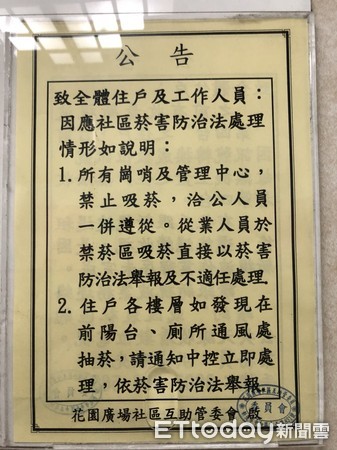 公告
致全體住戶及工作人員：
因應社區菸害防治法處理
情形如說明：
1. 所有崗哨及管理中心，
禁止吸菸，洽公人員
一併遵從。從業人員於
禁菸區吸菸直接以菸害
防治法舉報及不適任處理
2. 住戶各樓層如發現在
前陽台、廁所通風處
抽菸，請通知中控立即處
理，依菸害防治法舉報
花園廣場社區互助管委會 啟
委員會
ETtoday新聞雲